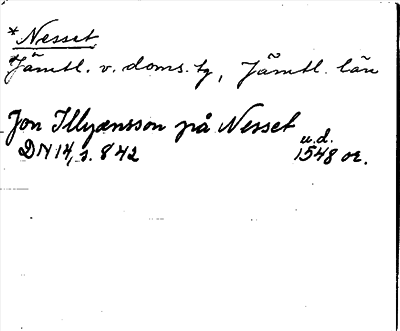 *Nesset
Jämtl. v. doms. tg, Jämtl. län
Jon Illyænsson på Nesset
DN 14, s. 842 u.d. 1548 or.